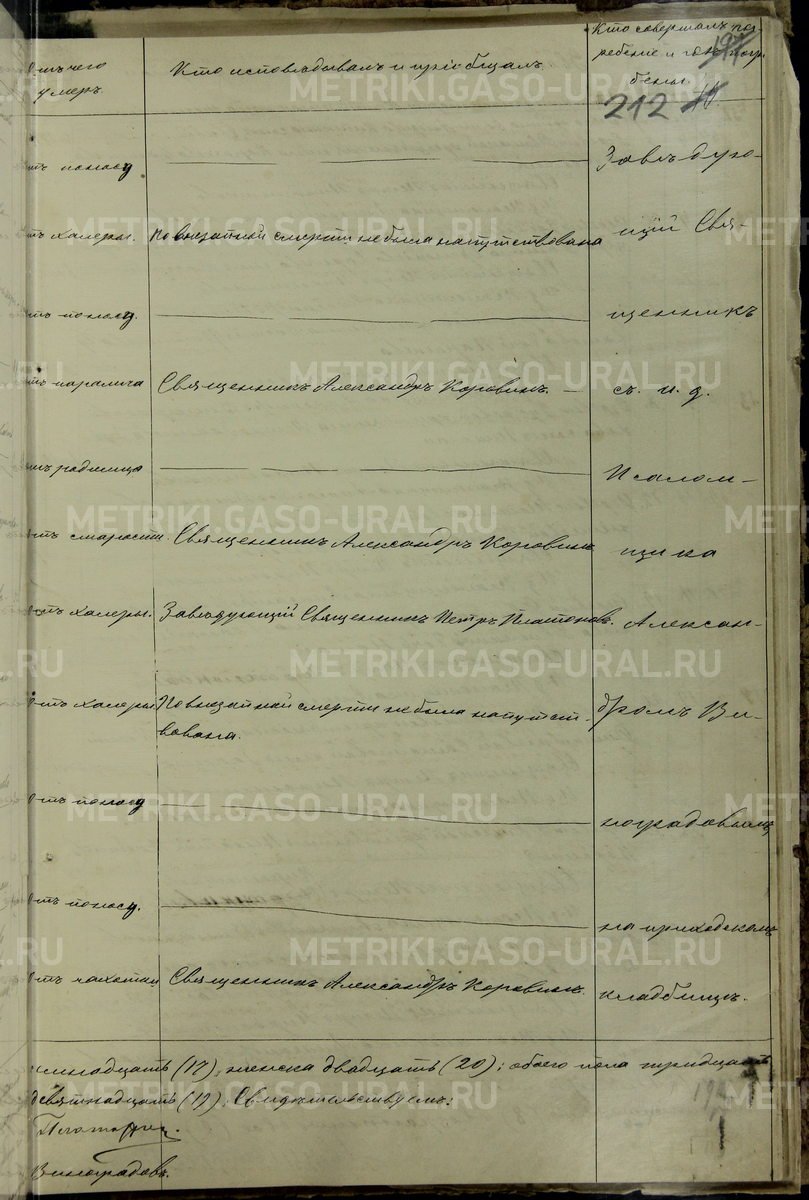 Кто совершалъ по-
Отъ чего Кто исповѣдывалъ и пріобщалъ. ребеніе и гдѣ погре
умеръ. бены.
212
отъ поноса Завѣдую-
отъ холеры. По внезапной смерти не была напутствована щій Свя-
отъ поноса. щенникъ
отъ паралича Священникъ Александръ Коровинъ. — съ и. д.
отъ родимца Псалом-
отъ старости. Священникъ Александръ Коровинъ щика
Отъ холеры. Завѣдующій Священникъ Петръ Платоновъ. Алексан-
Отъ холеры По внезапной смерти не была напутст- дромъ Ви-
вована.
Отъ поноса ноградовымъ
Отъ поноса. на приходскомъ
Отъ чахотки Священникъ Александръ Коровинъ. кладбищѣ.
надцать (17), женска двадцать (20); обоего пола тридцать
девятнадцать (19). Свидѣтельствуемъ:
Виноградовъ.
METRIKI.GASO-URAL.RU